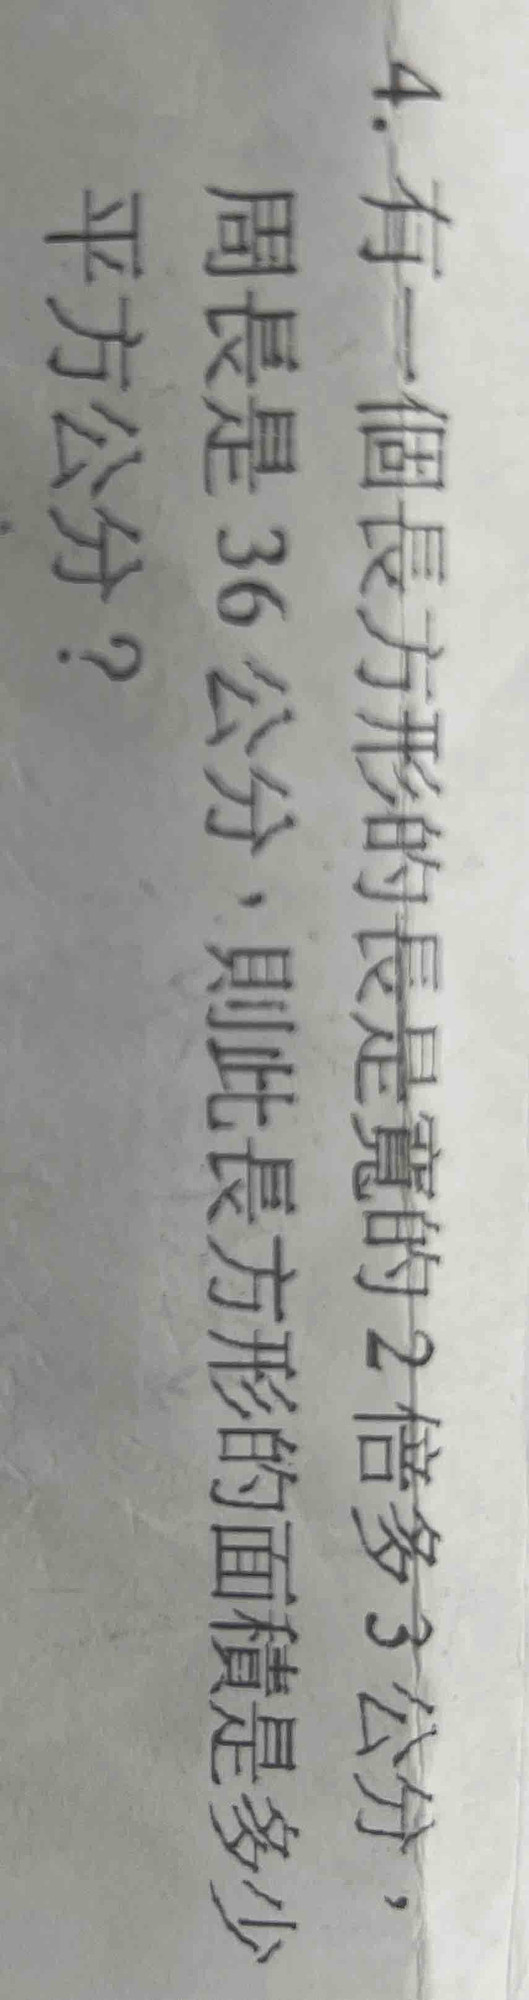 4. 有一個長方形的長是寬的2倍多3公分，
周長是36公分，則此長方形的面積是多少
平方公分？